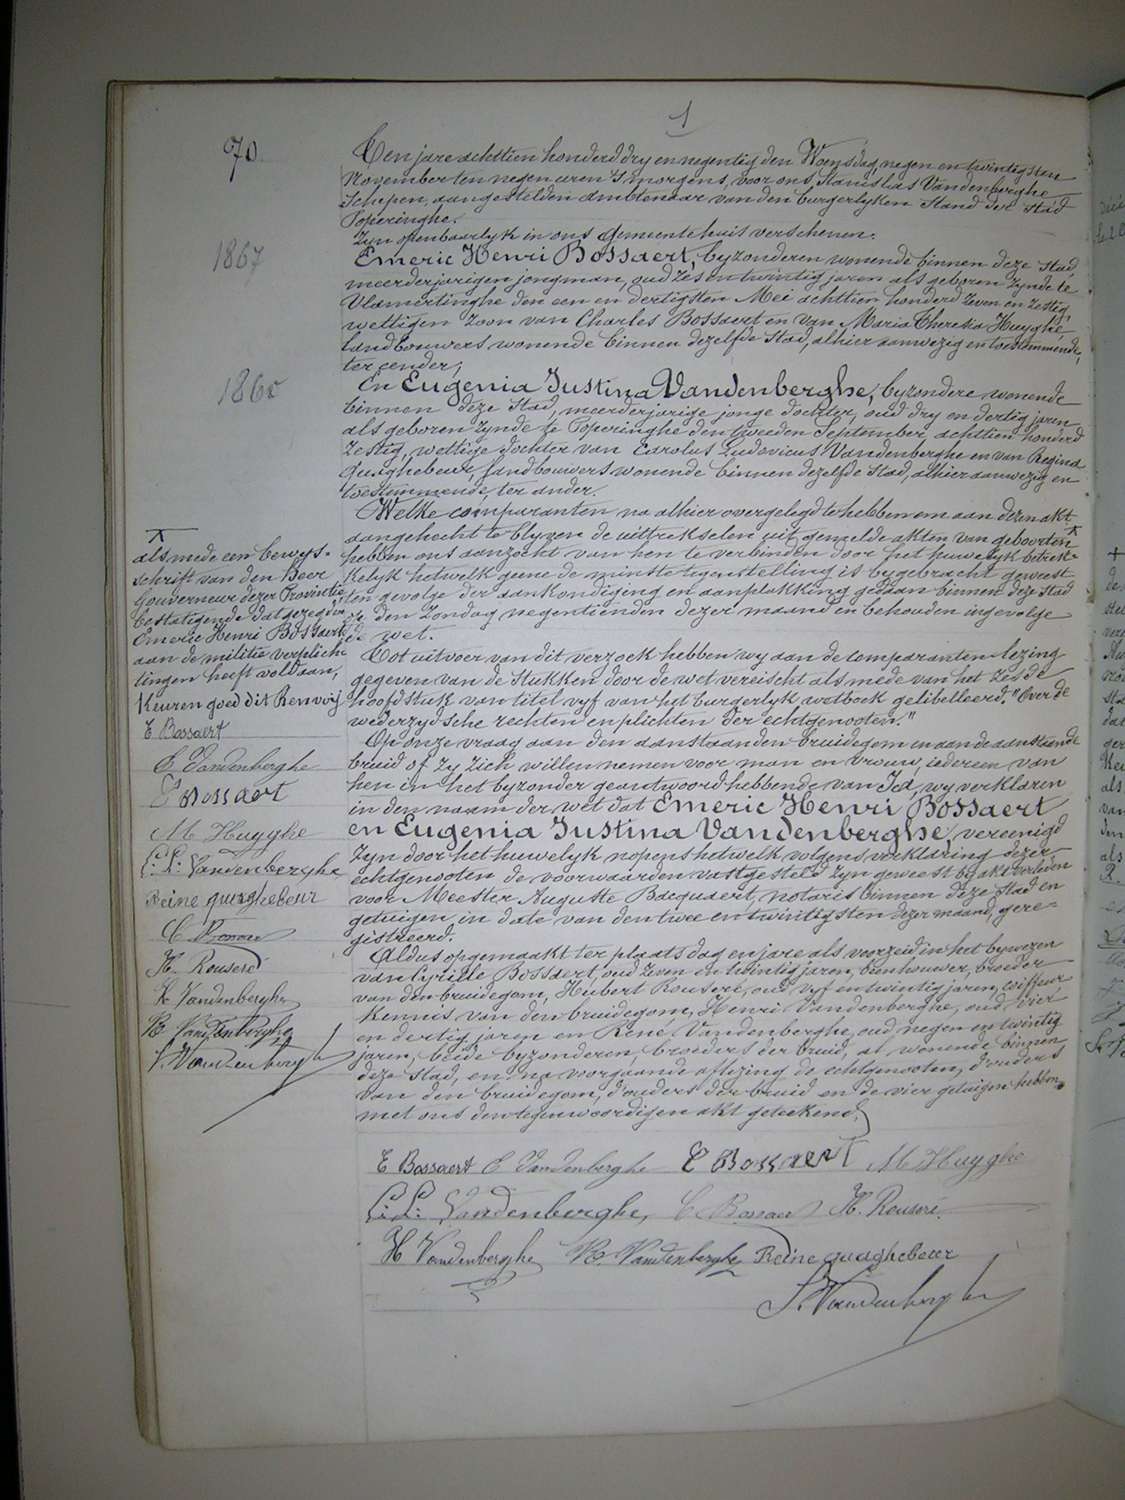 1
70
Ten jare achttien honderd dry en negentig den Woensdag, negen en twintigsten
November ten negen uren 's morgens, voor ons, Stanislas Vandenberghe
Schepen, aangestelden ambtenaar van den burgerlyken Stand der Stad
Poperinghe.
Zyn openbaarlyk in ons gemeentehuis verschenen.
1867
Emeric Henri Bossaert, byzonderen wonende binnen deze Stad,
meerderjarigen jongman, oud zes en twintig jaren als geboren zynde te
Vlamertinghe den een en dertigsten Mei achttien honderd zeven en zestig,
wettigen zoon van Charles Bossaert en van Maria Theresia Huyghe
landbouwers wonende binnen dezelfde Stad, alhier aanwezig en toestemmende,
ter eender;
1860
En Eugenia Justina Vandenberghe, byzondere wonende
binnen deze Stad, meerderjarige jonge dochter, oud dry en dertig jaren
als geboren zynde te Poperinghe den tweeden September achttien honderd
zestig, wettige dochter van Carolus Ludovicus Vandenberghe en van Regina
Quaghebeur, landbouwers wonende binnen dezelfde Stad, alhier aanwezig en
toestemmende, ter ander.
Welke comparanten na alhier overgelegd te hebben om aan dezen akt
aangehecht te blyven de uittrekselen uit gemelde akten van geboorten
hebben ons aanzocht van hen te verbinden door het huwelyk betrek-
kelyk hetwelk geene de minste tegenstelling is bygebracht geweest
ten gevolge der aankondiging en aanplakking gedaan binnen deze Stad
den Zondag negentienden dezer maand en behouden ingevolge
de wet.
Tot uitvoer van dit verzoek hebben wy aan de comparanten lezing
gegeven van de Stukken door de wet vereischt als mede van het zesde
hoofdstuk van titel vyf van het burgerlyk wetboek gelibelleerd, "Over de
wederzydsche rechten en plichten der echtgenooten."
Op onze vraag aan den aanstaanden bruidegom en aan de aanstaande
bruid of zy zich willen nemen voor man en vrouw, iedereen van
hen in het byzonder geantwoord hebbende van Ja, wy verklaren
in den naam der wet dat Emeric Henri Bossaert
en Eugenia Justina Vandenberghe, vereenigd
zyn door het huwelyk nopens hetwelk volgens verklaring dezer
echtgenooten de voorwaarden vastgesteld zyn geweest by akt verleden
voor Meester Auguste Bacquaert, notaris binnen deze Stad en
getuigen in date van den twee en twintigsten dezer maand, gere-
gistreerd.
Aldus opgemaakt ter plaats dag en jare als voorzeid in het bywezen
van Cyrille Bossaert, oud zeven en twintig jaren, beenhouwer, broeder
van den bruidegom, Hubert Rouseré, oud vyf en twintig jaren, coiffeur,
kennis van den bruidegom, Henri Vandenberghe, oud vier
en dertig jaren en René Vandenberghe, oud negen en twintig
jaren, beide byzonderen, broeders der bruid, al wonende binnen
deze Stad, en na voorgaande aflezing de echtgenooten, d'ouders
van den bruidegom, d'ouders der bruid en de vier getuigen hebben
met ons den tegenwoordigen akt geteekend.
E Bossaert E Vandenberghe C Bossaert M Huyghe
C: L: Vandenberghe C Bossaert H. Rouseré
H Vandenberghe R. Vandenberghe Reine quaghebeur
S. Vandenberghe
als mede een bewys-
schrift van den Heer
Gouverneur dezer Provintie
bestatigende dat gezegden
Emeric Henri Bossaert
aan de militie verplich-
tingen heeft voldaan,
Keuren goed dit Renvoij
E Bossaert
E Vandenberghe
C Bossaert
M Huyghe
C: L: Vandenberghe
Reine quaghebeur
C Bossaert
H. Rouseré
H Vandenberghe
R. Vandenberghe
S. Vandenberghe